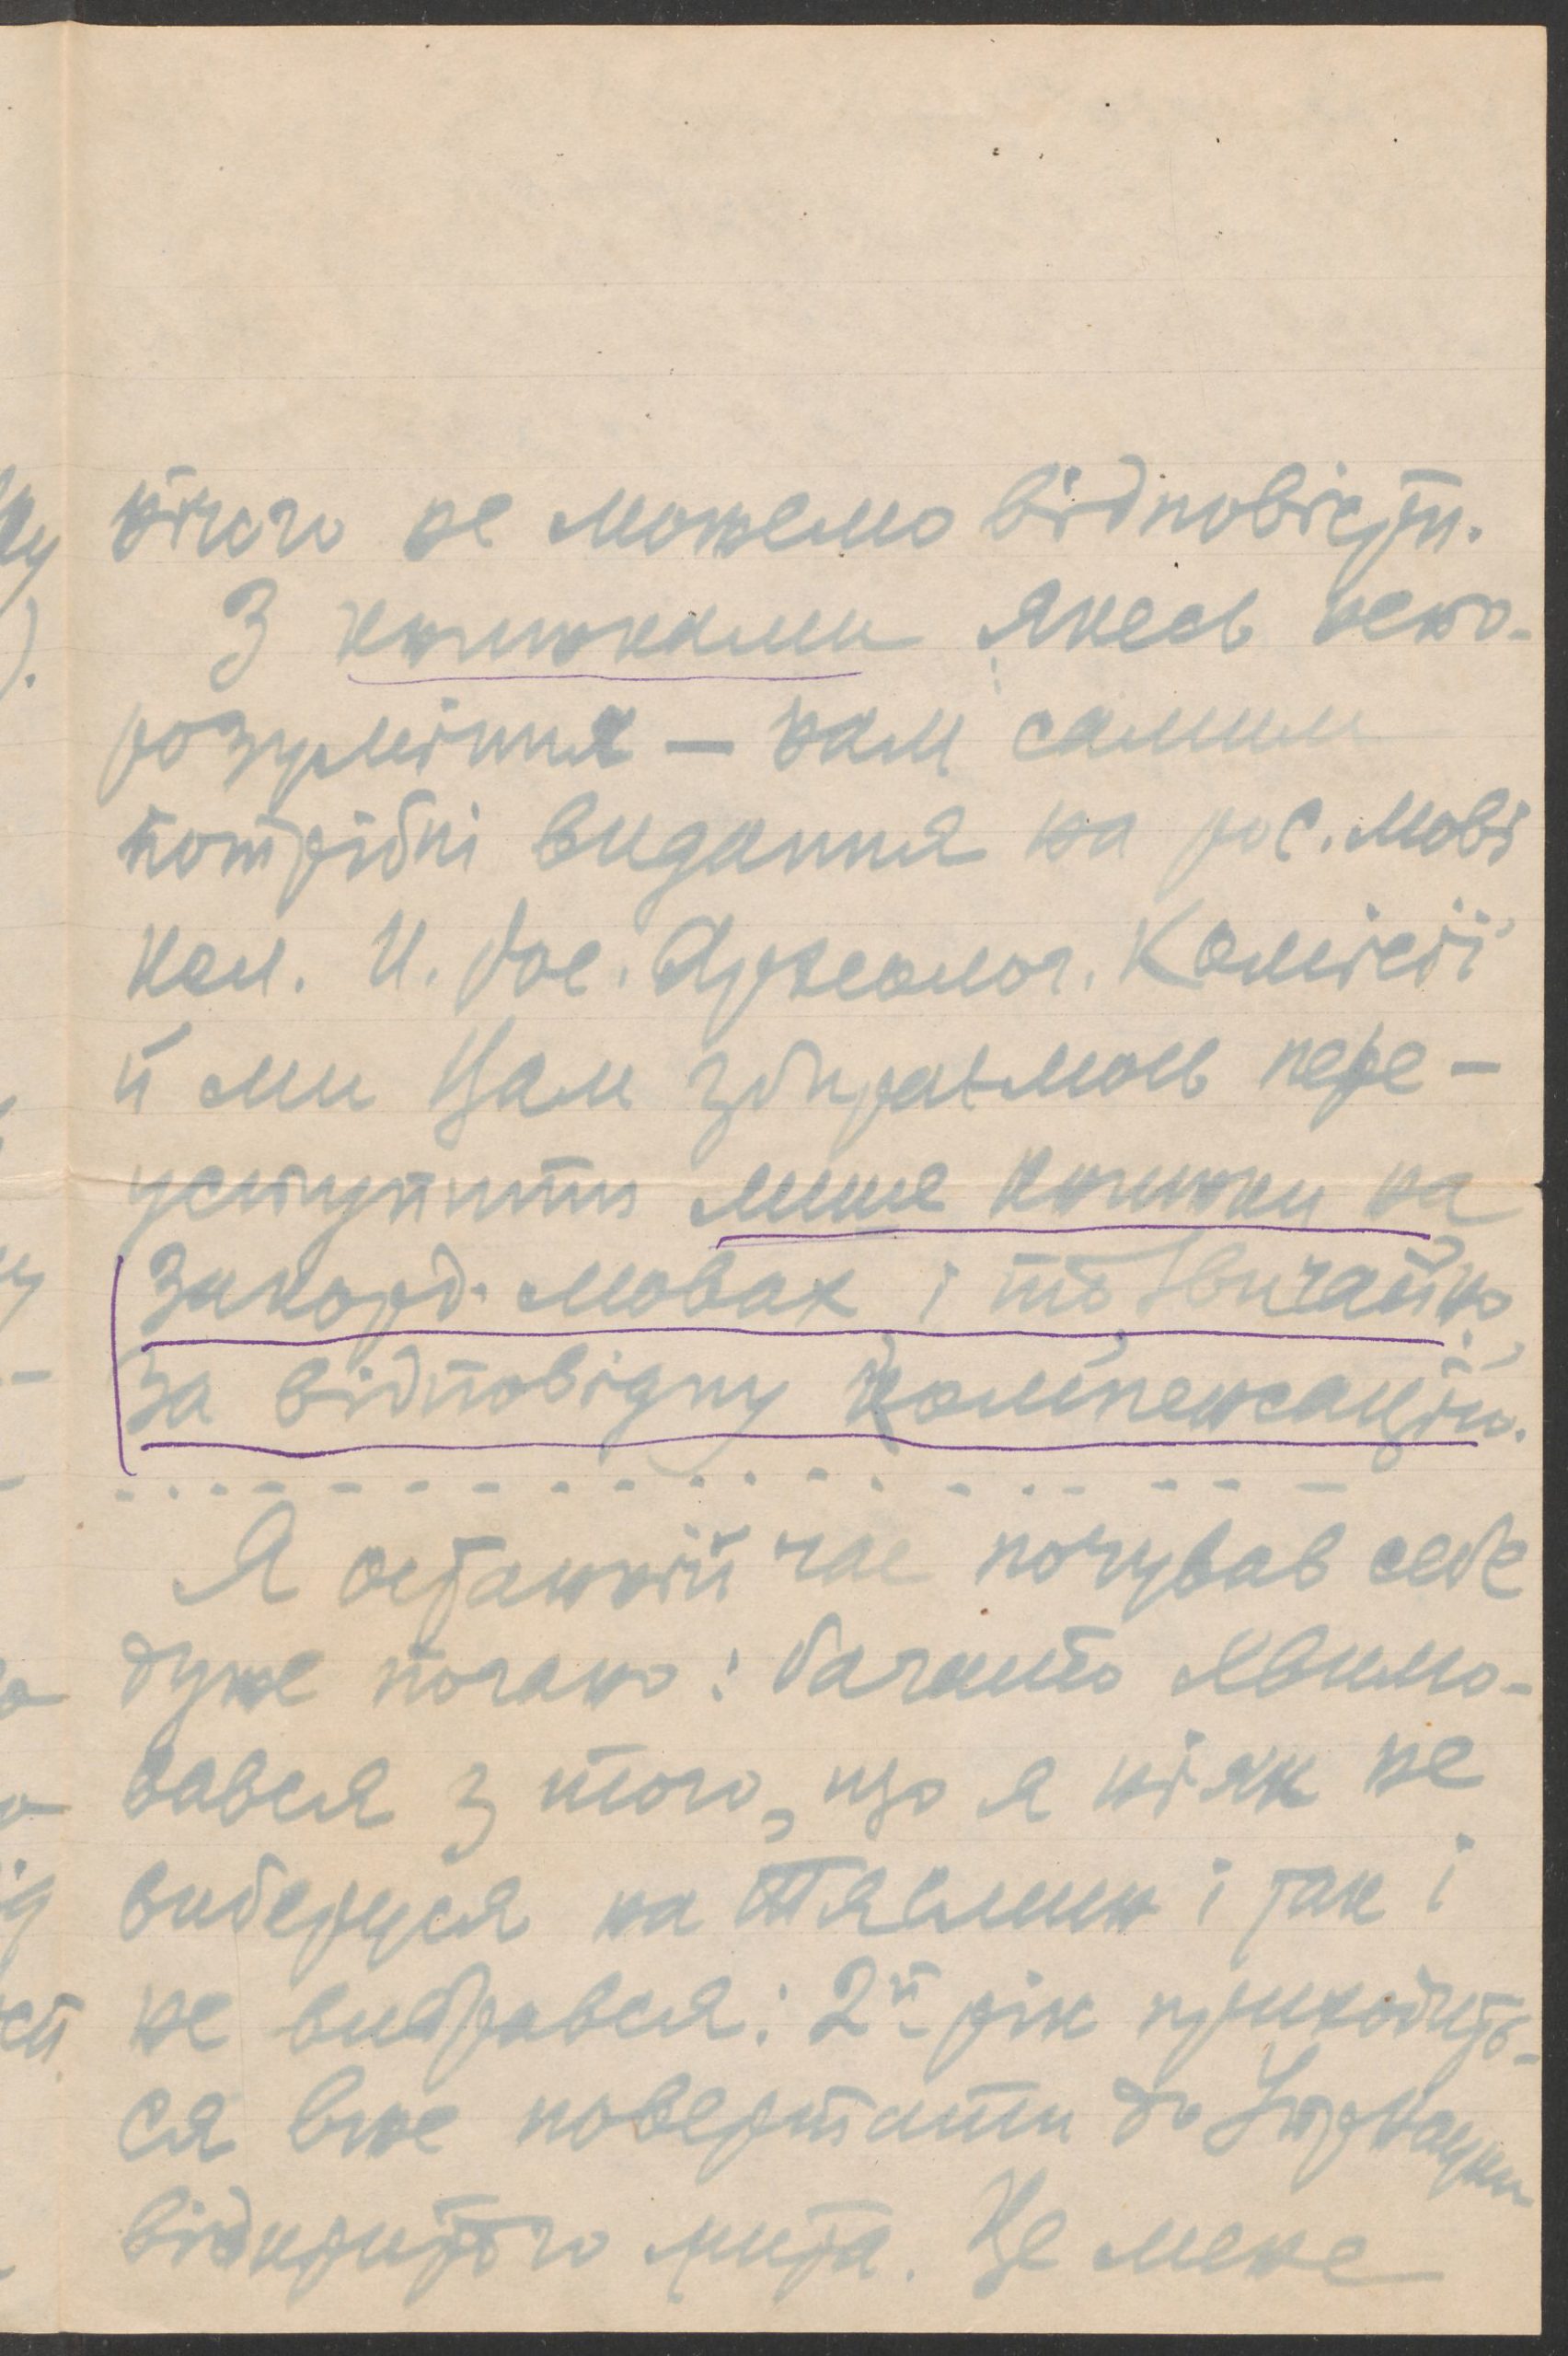 нічого не можемо відповісти.
З книжками якесь непо-
розуміння — нам самим
потрібні видання на рос. мові
кол. И. Рос. Археолог. Комісії
й ми Вам збирались пере-
уступити лише книжки на
закорд. мовах і то звичайно,
за відповідну компенсацію.
Я останній час почував себе
дуже погано: багато хвилю-
вався з того, що я ніяк не
виберуся на Тясмин і так і
не вибрався: 2й рік приходить-
ся вже повертати до Укрнауки
відкритого листа. Це мене